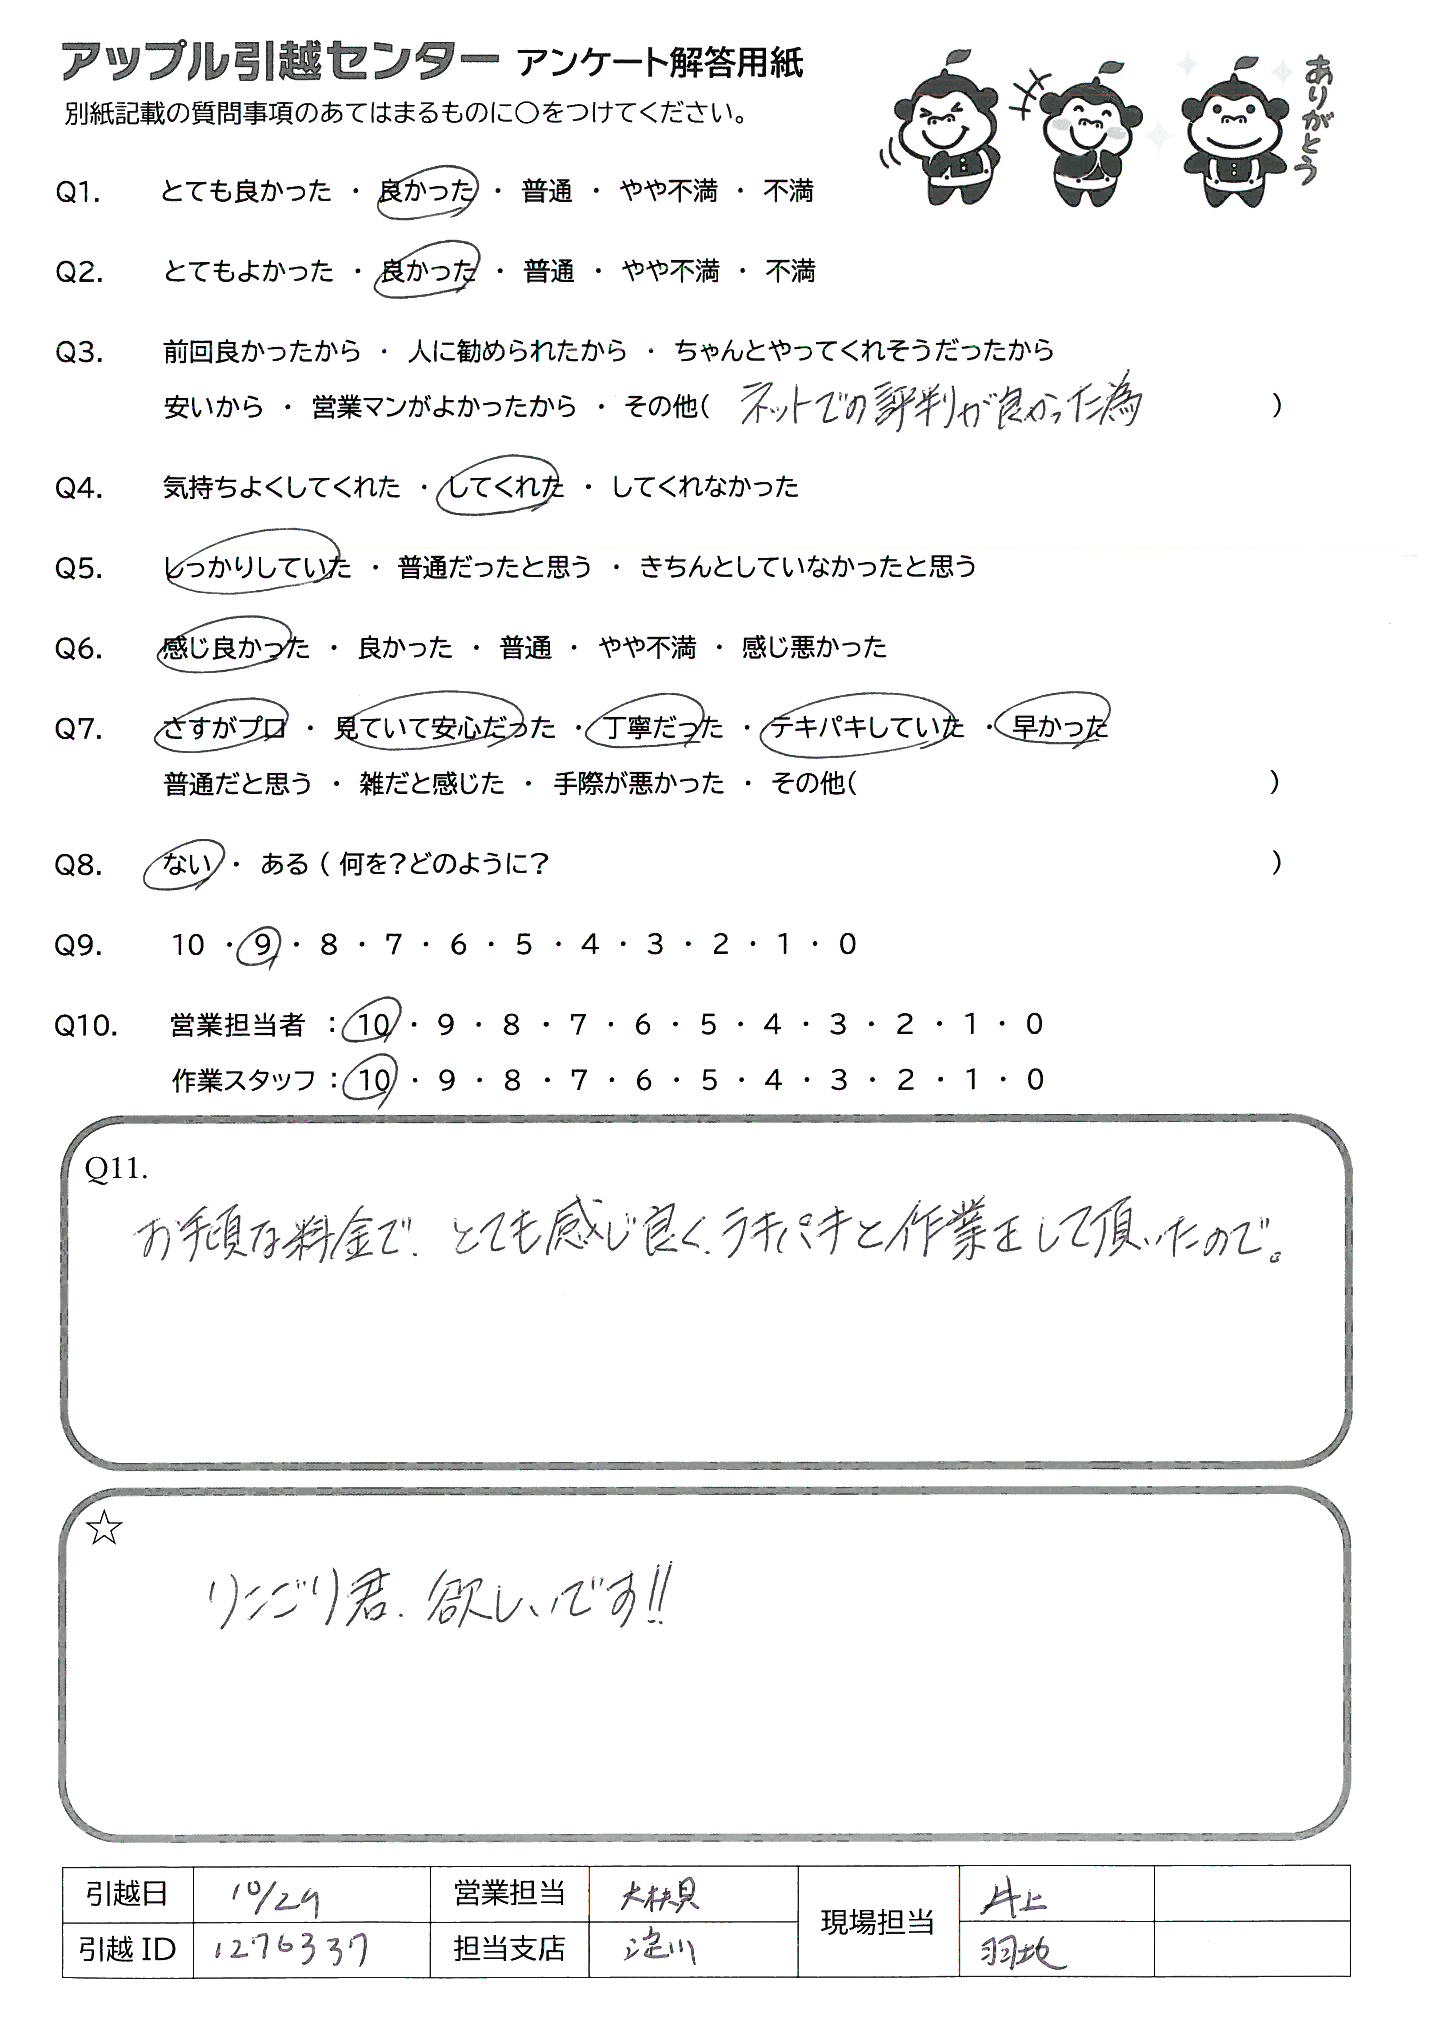 アップル引越センター アンケート解答用紙
別紙記載の質問事項のあてはまるものに○をつけてください。
ありがとう
Q1. とても良かった ・ 良かった ・ 普通 ・ やや不満 ・ 不満
Q2. とてもよかった ・ 良かった ・ 普通 ・ やや不満 ・ 不満
Q3. 前回良かったから ・ 人に勧められたから ・ ちゃんとやってくれそうだったから
安いから ・ 営業マンがよかったから ・ その他( ネットでの評判が良かった為 )
Q4. 気持ちよくしてくれた ・ してくれた ・ してくれなかった
Q5. しっかりしていた ・ 普通だったと思う ・ きちんとしていなかったと思う
Q6. 感じ良かった ・ 良かった ・ 普通 ・ やや不満 ・ 感じ悪かった
Q7. さすがプロ ・ 見ていて安心だった ・ 丁寧だった ・ テキパキしていた ・ 早かった
普通だと思う ・ 雑だと感じた ・ 手際が悪かった ・ その他( )
Q8. ない ・ ある ( 何を?どのように? )
Q9. 10 ・ 9 ・ 8 ・ 7 ・ 6 ・ 5 ・ 4 ・ 3 ・ 2 ・ 1 ・ 0
Q10. 営業担当者 : 10 ・ 9 ・ 8 ・ 7 ・ 6 ・ 5 ・ 4 ・ 3 ・ 2 ・ 1 ・ 0
作業スタッフ : 10 ・ 9 ・ 8 ・ 7 ・ 6 ・ 5 ・ 4 ・ 3 ・ 2 ・ 1 ・ 0
Q11.
お手頃な料金で、とても感じ良く、テキパキと作業をして頂いたので。
☆
りんごり君、欲しいです!!
引越日 10/29 営業担当 現場担当 井上
引越ID 1276337 担当支店 淀川 羽地